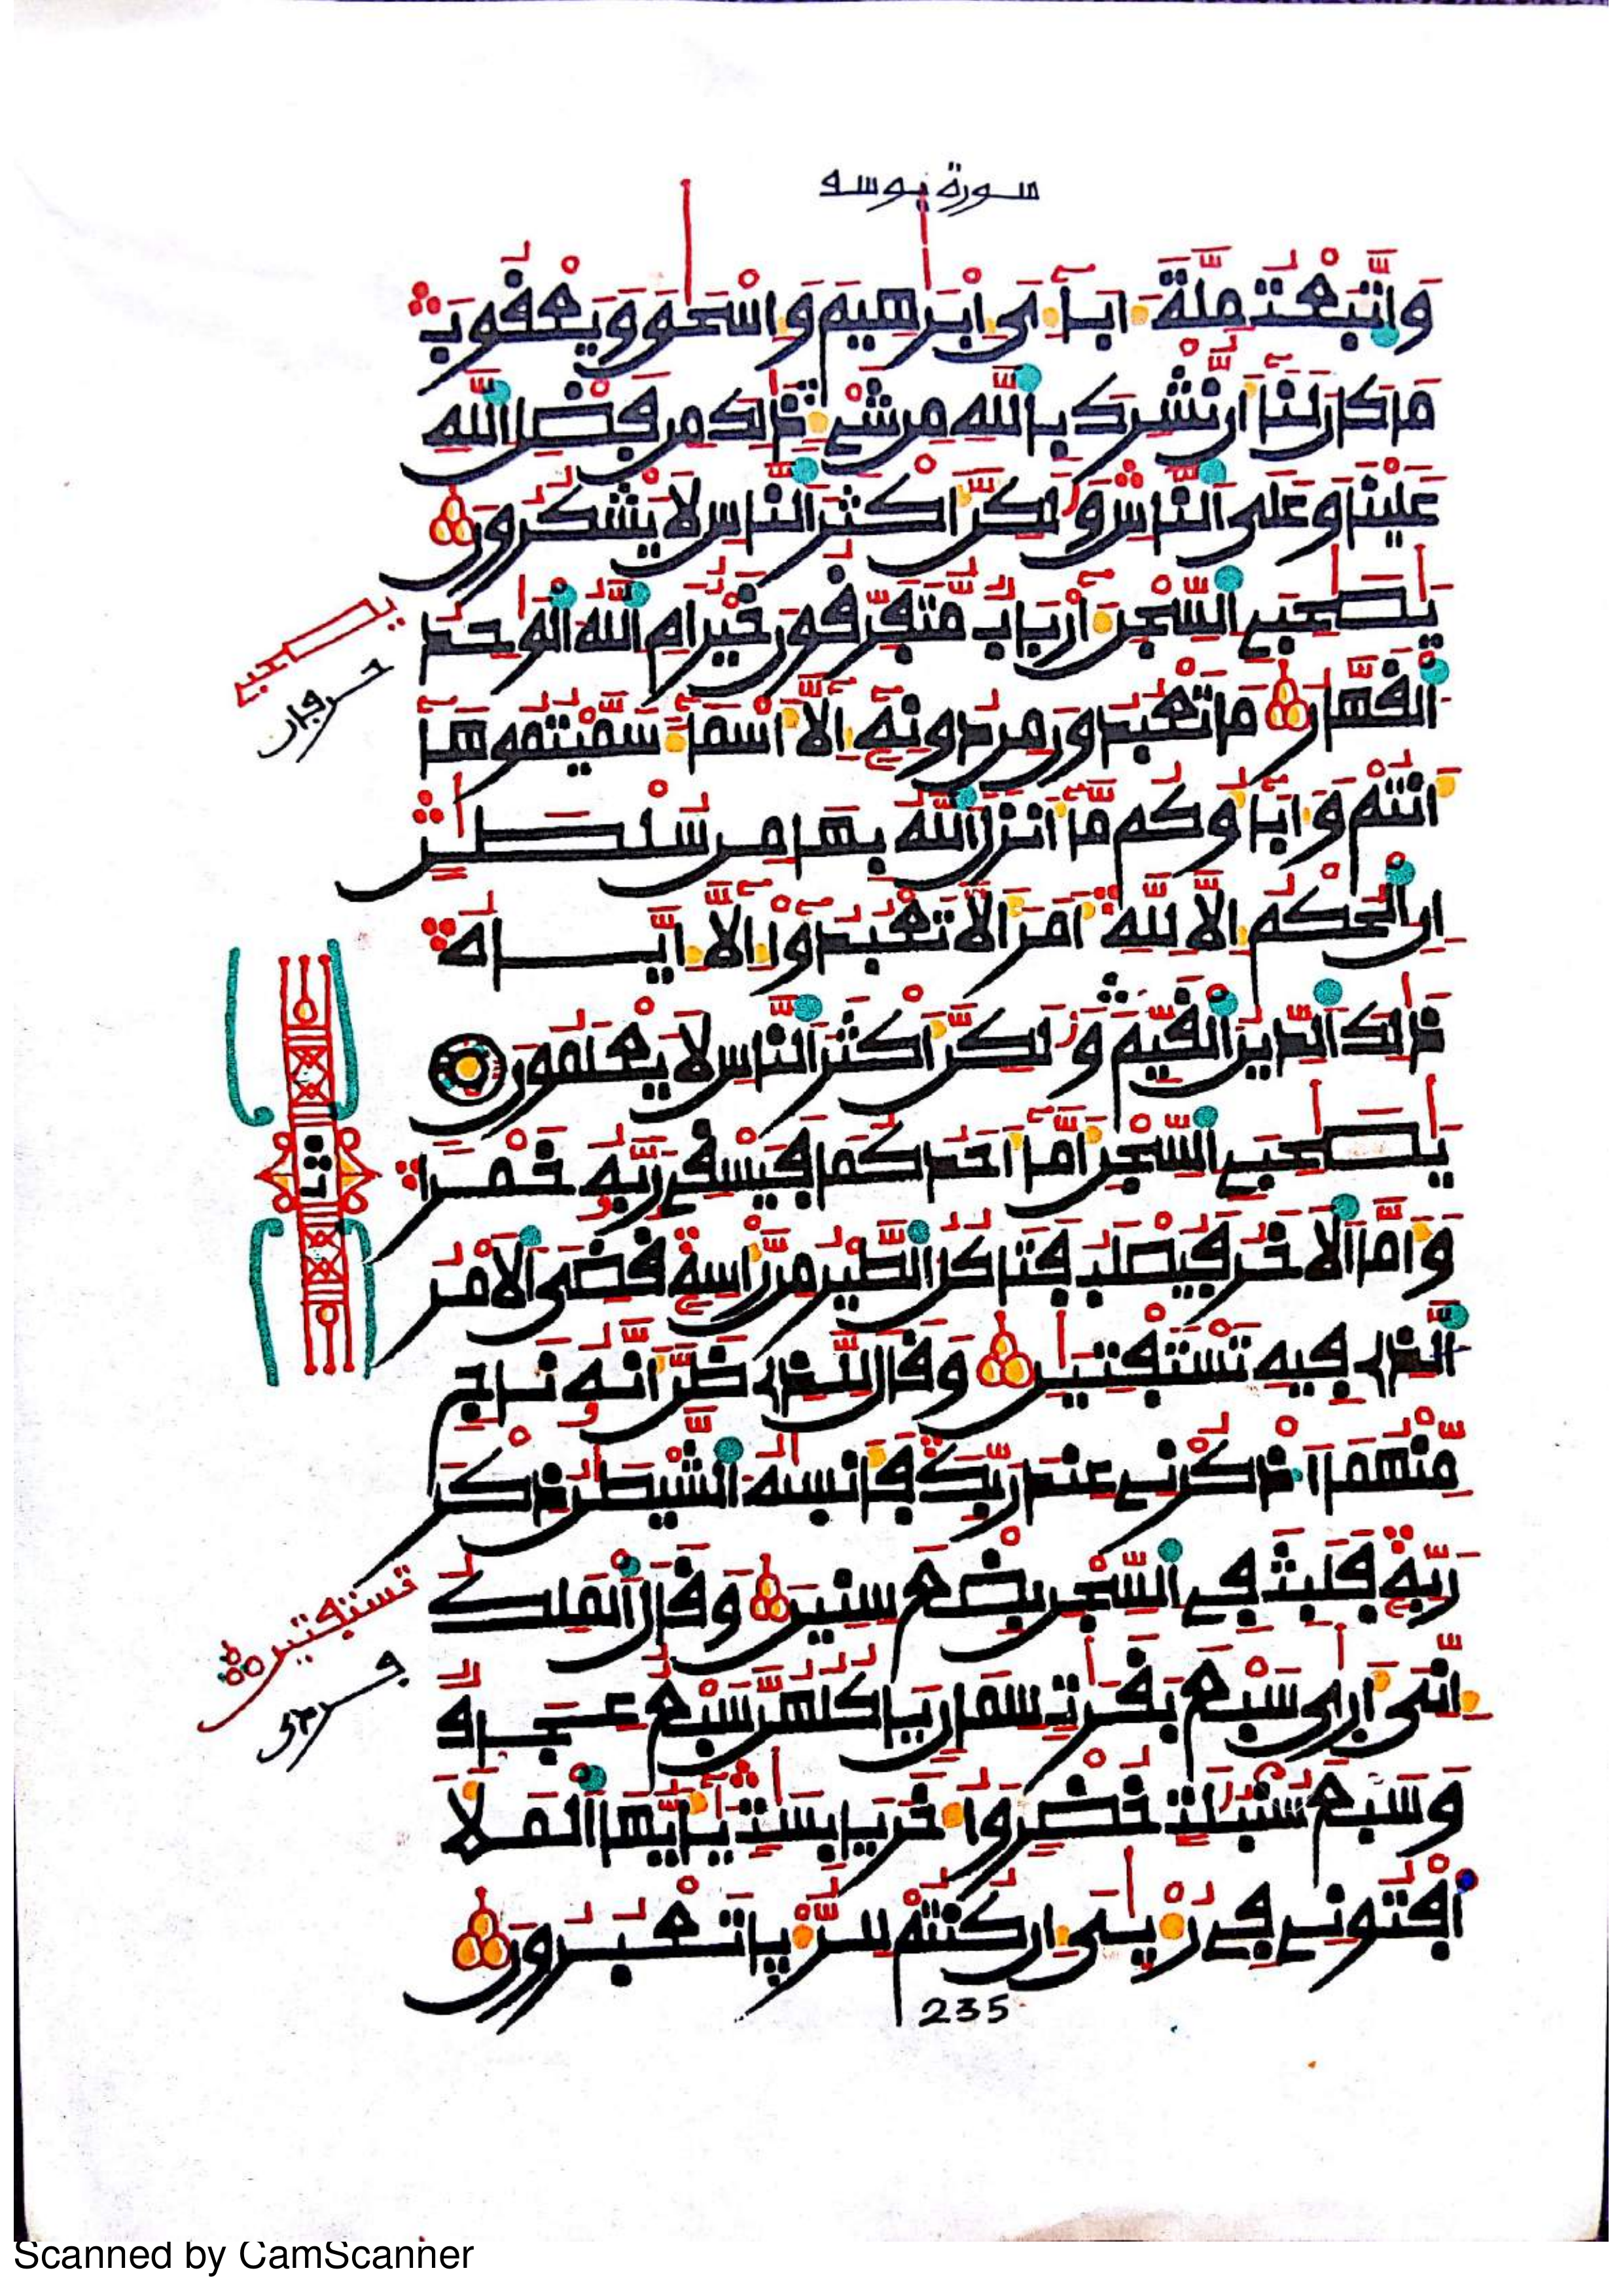 سورة يوسف
وَاتَّبَعْتُ مِلَّةَ ءَابَآءِى إِبْرَٰهِيمَ وَإِسْحَٰقَ وَيَعْقُوبَ
مَا كَانَ لَنَآ أَن نُّشْرِكَ بِاللَّهِ مِن شَىْءٍ ذَٰلِكَ مِن فَضْلِ اللَّهِ
عَلَيْنَا وَعَلَى النَّاسِ وَلَٰكِنَّ أَكْثَرَ النَّاسِ لَا يَشْكُرُونَ
يَٰصَٰحِبَىِ السِّجْنِ ءَأَرْبَابٌ مُّتَفَرِّقُونَ خَيْرٌ أَمِ اللَّهُ الْوَٰحِدُ
الْقَهَّارُ مَا تَعْبُدُونَ مِن دُونِهِ إِلَّآ أَسْمَآءً سَمَّيْتُمُوهَآ
أَنتُمْ وَءَابَآؤُكُم مَّآ أَنزَلَ اللَّهُ بِهَا مِن سُلْطَٰنٍ
إِنِ الْحُكْمُ إِلَّا لِلَّهِ أَمَرَ أَلَّا تَعْبُدُوٓا۟ إِلَّآ إِيَّاهُ
ذَٰلِكَ الدِّينُ الْقَيِّمُ وَلَٰكِنَّ أَكْثَرَ النَّاسِ لَا يَعْلَمُونَ
يَٰصَٰحِبَىِ السِّجْنِ أَمَّآ أَحَدُكُمَا فَيَسْقِى رَبَّهُ خَمْرًا
وَأَمَّا الْآخَرُ فَيُصْلَبُ فَتَأْكُلُ الطَّيْرُ مِن رَّأْسِهِ قُضِىَ الْأَمْرُ
الَّذِى فِيهِ تَسْتَفْتِيَٰنِ وَقَالَ لِلَّذِى ظَنَّ أَنَّهُ نَاجٍ
مِّنْهُمَا اذْكُرْنِى عِندَ رَبِّكَ فَأَنسَىٰهُ الشَّيْطَٰنُ ذِكْرَ
رَبِّهِ فَلَبِثَ فِى السِّجْنِ بِضْعَ سِنِينَ وَقَالَ الْمَلِكُ
إِنِّىَ أَرَىٰ سَبْعَ بَقَرَٰتٍ سِمَانٍ يَأْكُلُهُنَّ سَبْعٌ عِجَافٌ
وَسَبْعَ سُنۢبُلَٰتٍ خُضْرٍ وَأُخَرَ يَابِسَٰتٍ يَٰٓأَيُّهَا الْمَلَأُ
أَفْتُونِى فِى رُءْيَٰىَ إِن كُنتُمْ لِلرُّءْيَا تَعْبُرُونَ
يصاحبى
تستفتين
ثمن
235
Scanned by CamScanner